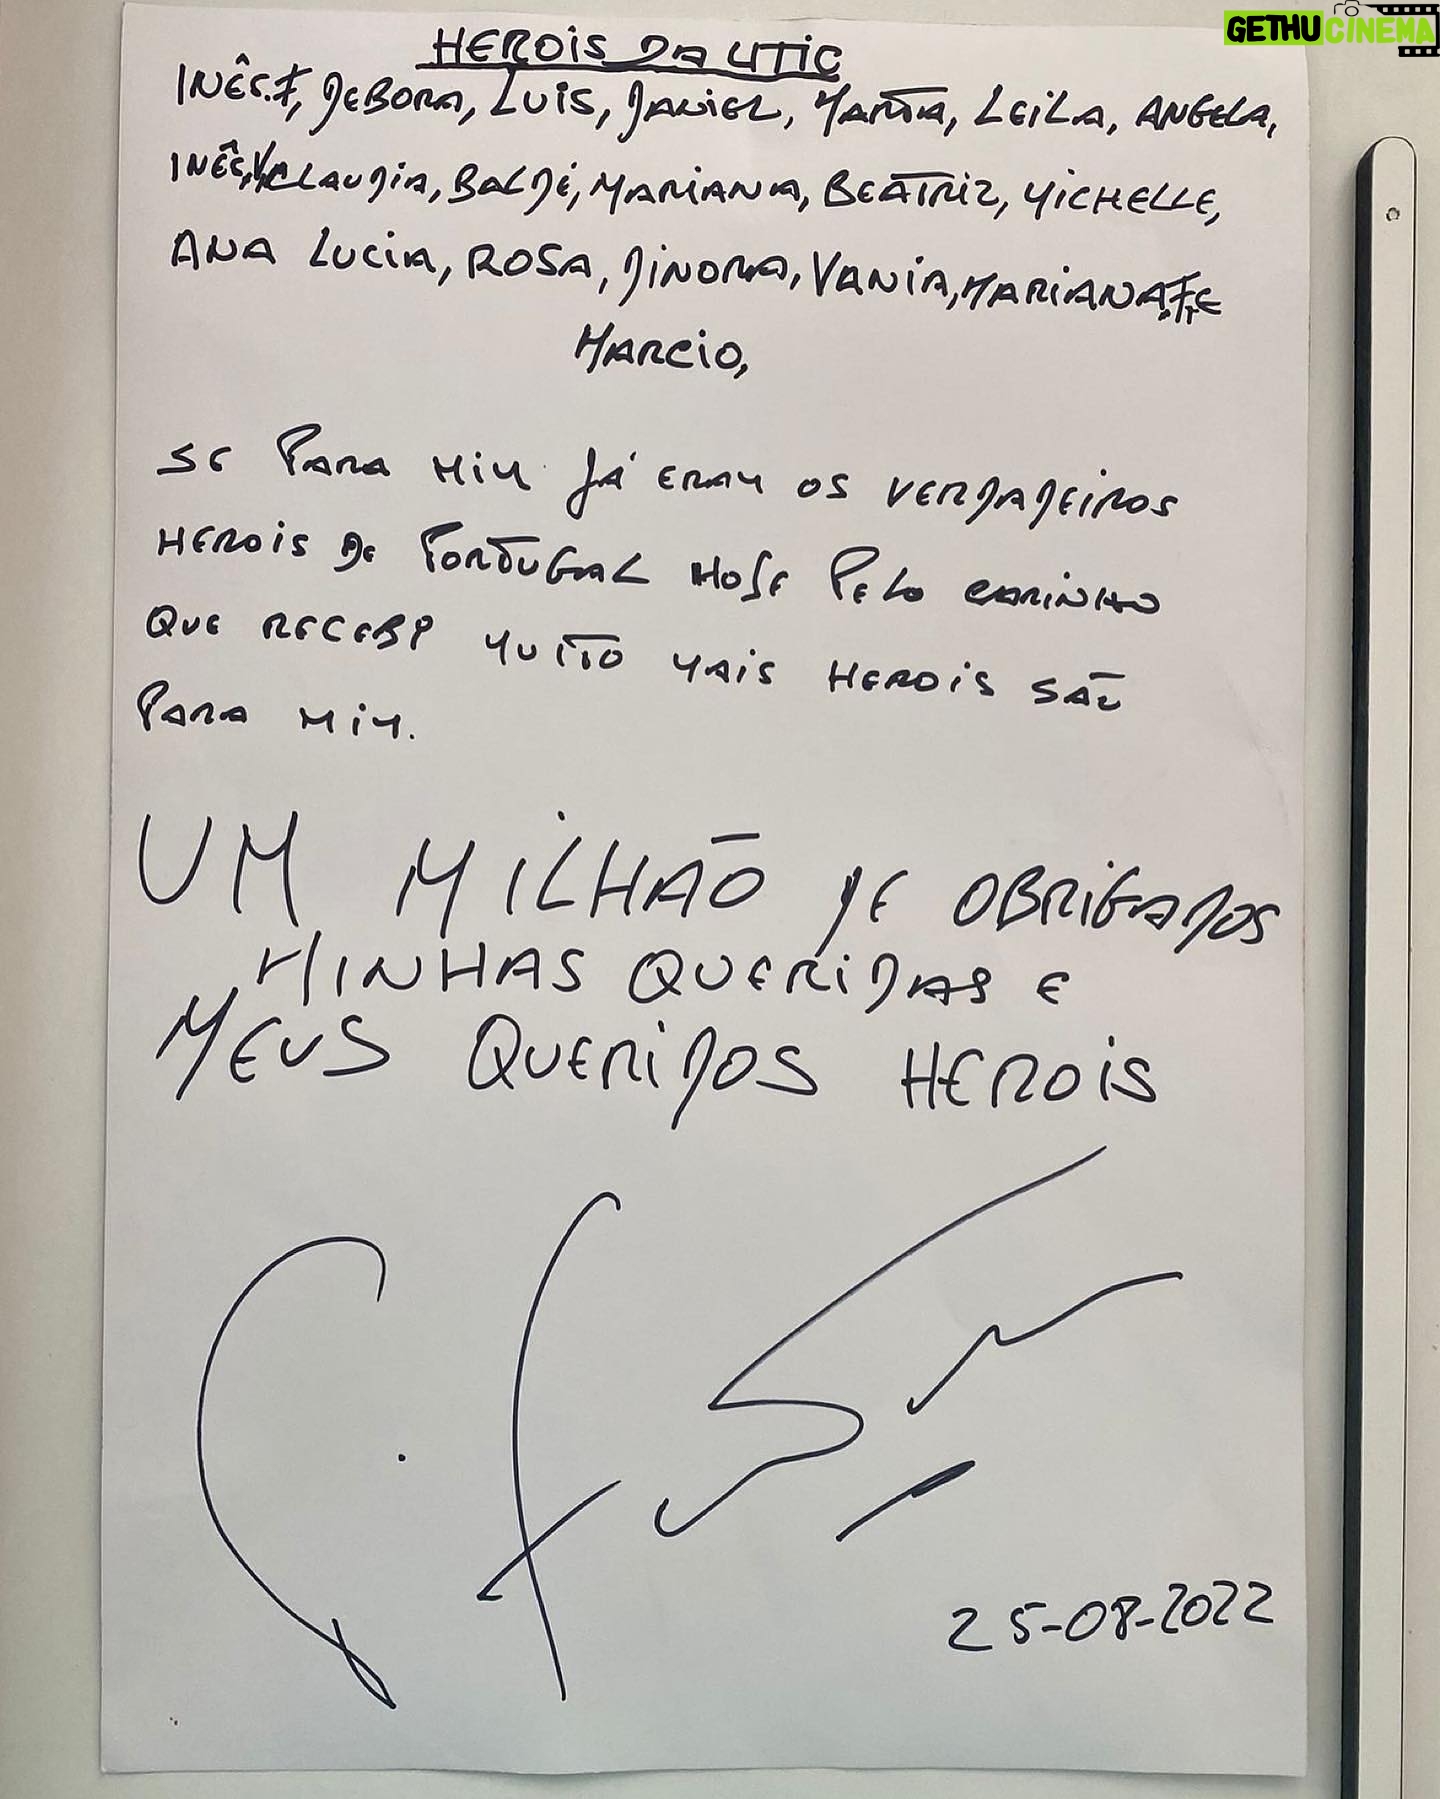 GETHUCINEMA
HEROIS DA UTIC
INÊS.F, DEBORA, LUIS, DANIEL, MARTA, LEILA, ANGELA,
INÊS.V, CLAUDIA, BALDÉ, MARIANA, BEATRIZ, MICHELLE,
ANA LUCIA, ROSA, DINORA, VANIA, MARIANA.F, E
MARCIO,
SE PARA MIM JÁ ERAM OS VERDADEIROS
HEROIS DE PORTUGAL HOJE PELO CARINHO
QUE RECEBI MUITO MAIS HEROIS SÃO
PARA MIM.
UM MILHÃO DE OBRIGADOS
MINHAS QUERIDAS E
MEUS QUERIDOS HEROIS
25-08-2022